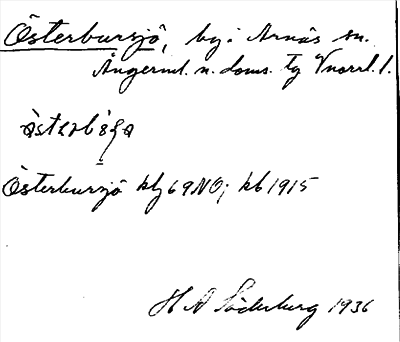 Österbursjö, by i Arnäs sn.
Ångerml. n. doms. tg Vnorrl. l.
Österbursjö kbg 69 NO; kb 1915
H A Söderberg 1936